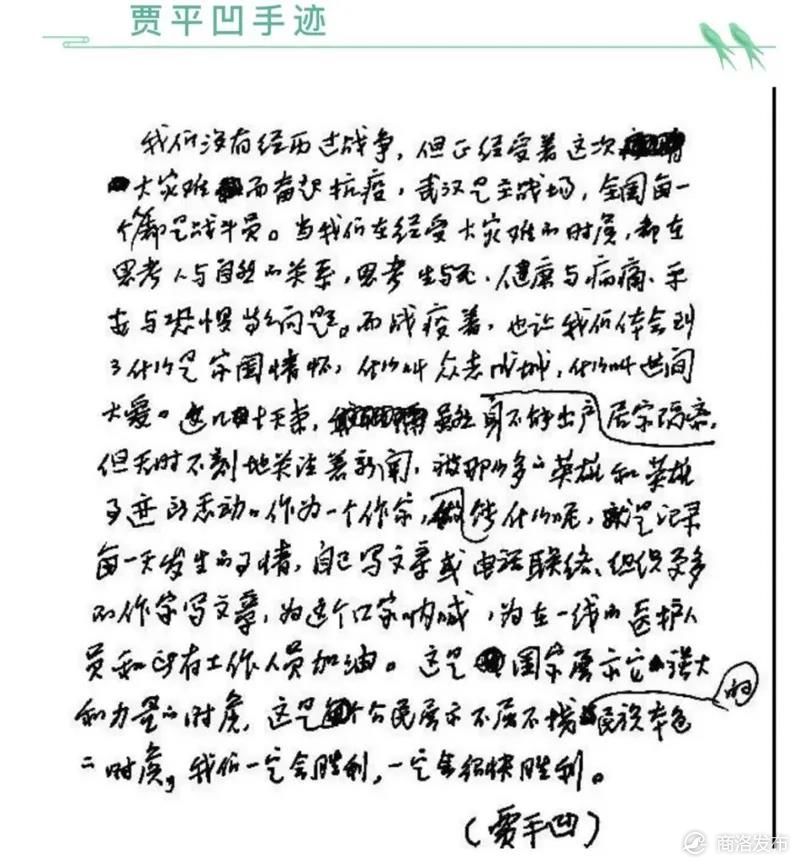 贾平凹手迹
我们没有经历过战争，但正经受着这次
大灾难而奋起抗疫，武汉是主战场，全国每一
个都是战斗员。当我们在经受大灾难的时候，都在
思考人与自然的关系，思考生与死、健康与病痛、平
安与恐惧等问题。而战疫着，也让我们体会到
了什么是家国情怀，什么叫众志成城，什么叫世间
大爱。这几十天来，虽然身不能出户居家隔离，
但无时不刻地关注着新闻，被那么多的英雄和英雄
事迹所感动。作为一个作家，能做什么呢，就是记录
每一天发生的事情，自己写文章或电话联络、组织更多
的作家写文章，为这个国家呐喊，为在一线的医护人
员和所有工作人员加油。这是国家展示它的强大
和力量的时候，这是每个公民展示不屈不挠的民族本色
的时候，我们一定会胜利，一定会很快胜利。
（贾平凹）
商洛发布